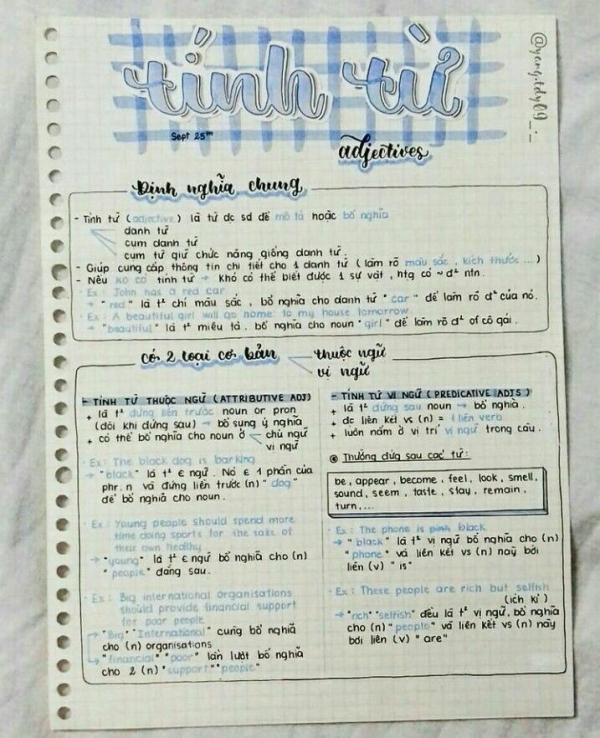 tính từ
@yeng.tdyl9_._
Sept 25th
adjectives
Định nghĩa chung
- Tính từ (adjective) là từ dc sd để mô tả hoặc bổ nghĩa
danh từ
cụm danh từ
cụm từ giữ chức năng giống danh từ.
- Giúp cung cấp thông tin chi tiết cho 1 danh từ (làm rõ màu sắc, kích thước ...)
- Nếu ko có tính từ → khó có thể biết được 1 sự vật, htg có ~ đ² ntn.
· Ex: John has a red car.
→ "red" là t² chỉ màu sắc, bổ nghĩa cho danh từ "car" để làm rõ đ² của nó.
· Ex: A beautiful girl will go home to my house tomorrow
→ "beautiful" là t² miêu tả. bổ nghĩa cho noun "girl" để làm rõ đ² of cô gái.
có 2 loại cơ bản
thuộc ngữ
vị ngữ
- TÍNH TỪ THUỘC NGỮ (ATTRIBUTIVE ADJ)
+ là t² đứng liền trước noun or pron
(đôi khi đứng sau) → bổ sung ý nghĩa
+ có thể bổ nghĩa cho noun ở
chủ ngữ
vị ngữ
· Ex: The black dog is barking
→ "black" là t² € ngữ. Nó € 1 phần của
phr. n và đứng liền trước (n) "dog"
để bổ nghĩa cho noun.
· Ex: Young people should spend more
time doing sports for the sake of
their own healthy
→ "young" là t² € ngữ bổ nghĩa cho (n)
"people" đằng sau.
· Ex: Big international organisations
should provide financial support
for poor people
→ "Big" "International" cùng bổ nghĩa
cho (n) organisations
→ "financial" "poor" lần lượt bổ nghĩa
cho 2 (n) "support" "people"
- TÍNH TỪ VỊ NGỮ (PREDICATIVE ADJS)
+ là t² đứng sau noun → bổ nghĩa.
+ dc liên kết vs (n) = 1 liên verb
+ luôn nằm ở vị trí vị ngữ trong câu.
Thường đứng sau các từ:
be, appear, become, feel, look, smell,
sound, seem, taste, stay, remain,
turn,...
· Ex: The phone is pink black
→ "black" là t² vị ngữ bổ nghĩa cho (n)
"phone" và liên kết vs (n) này bởi
liên (v) "is"
· Ex: These people are rich but selfish
(ích kỉ)
→ "rich" "selfish" đều là t² vị ngữ, bổ nghĩa
cho (n) "people" và liên kết vs (n) này
bởi liên (v) "are"